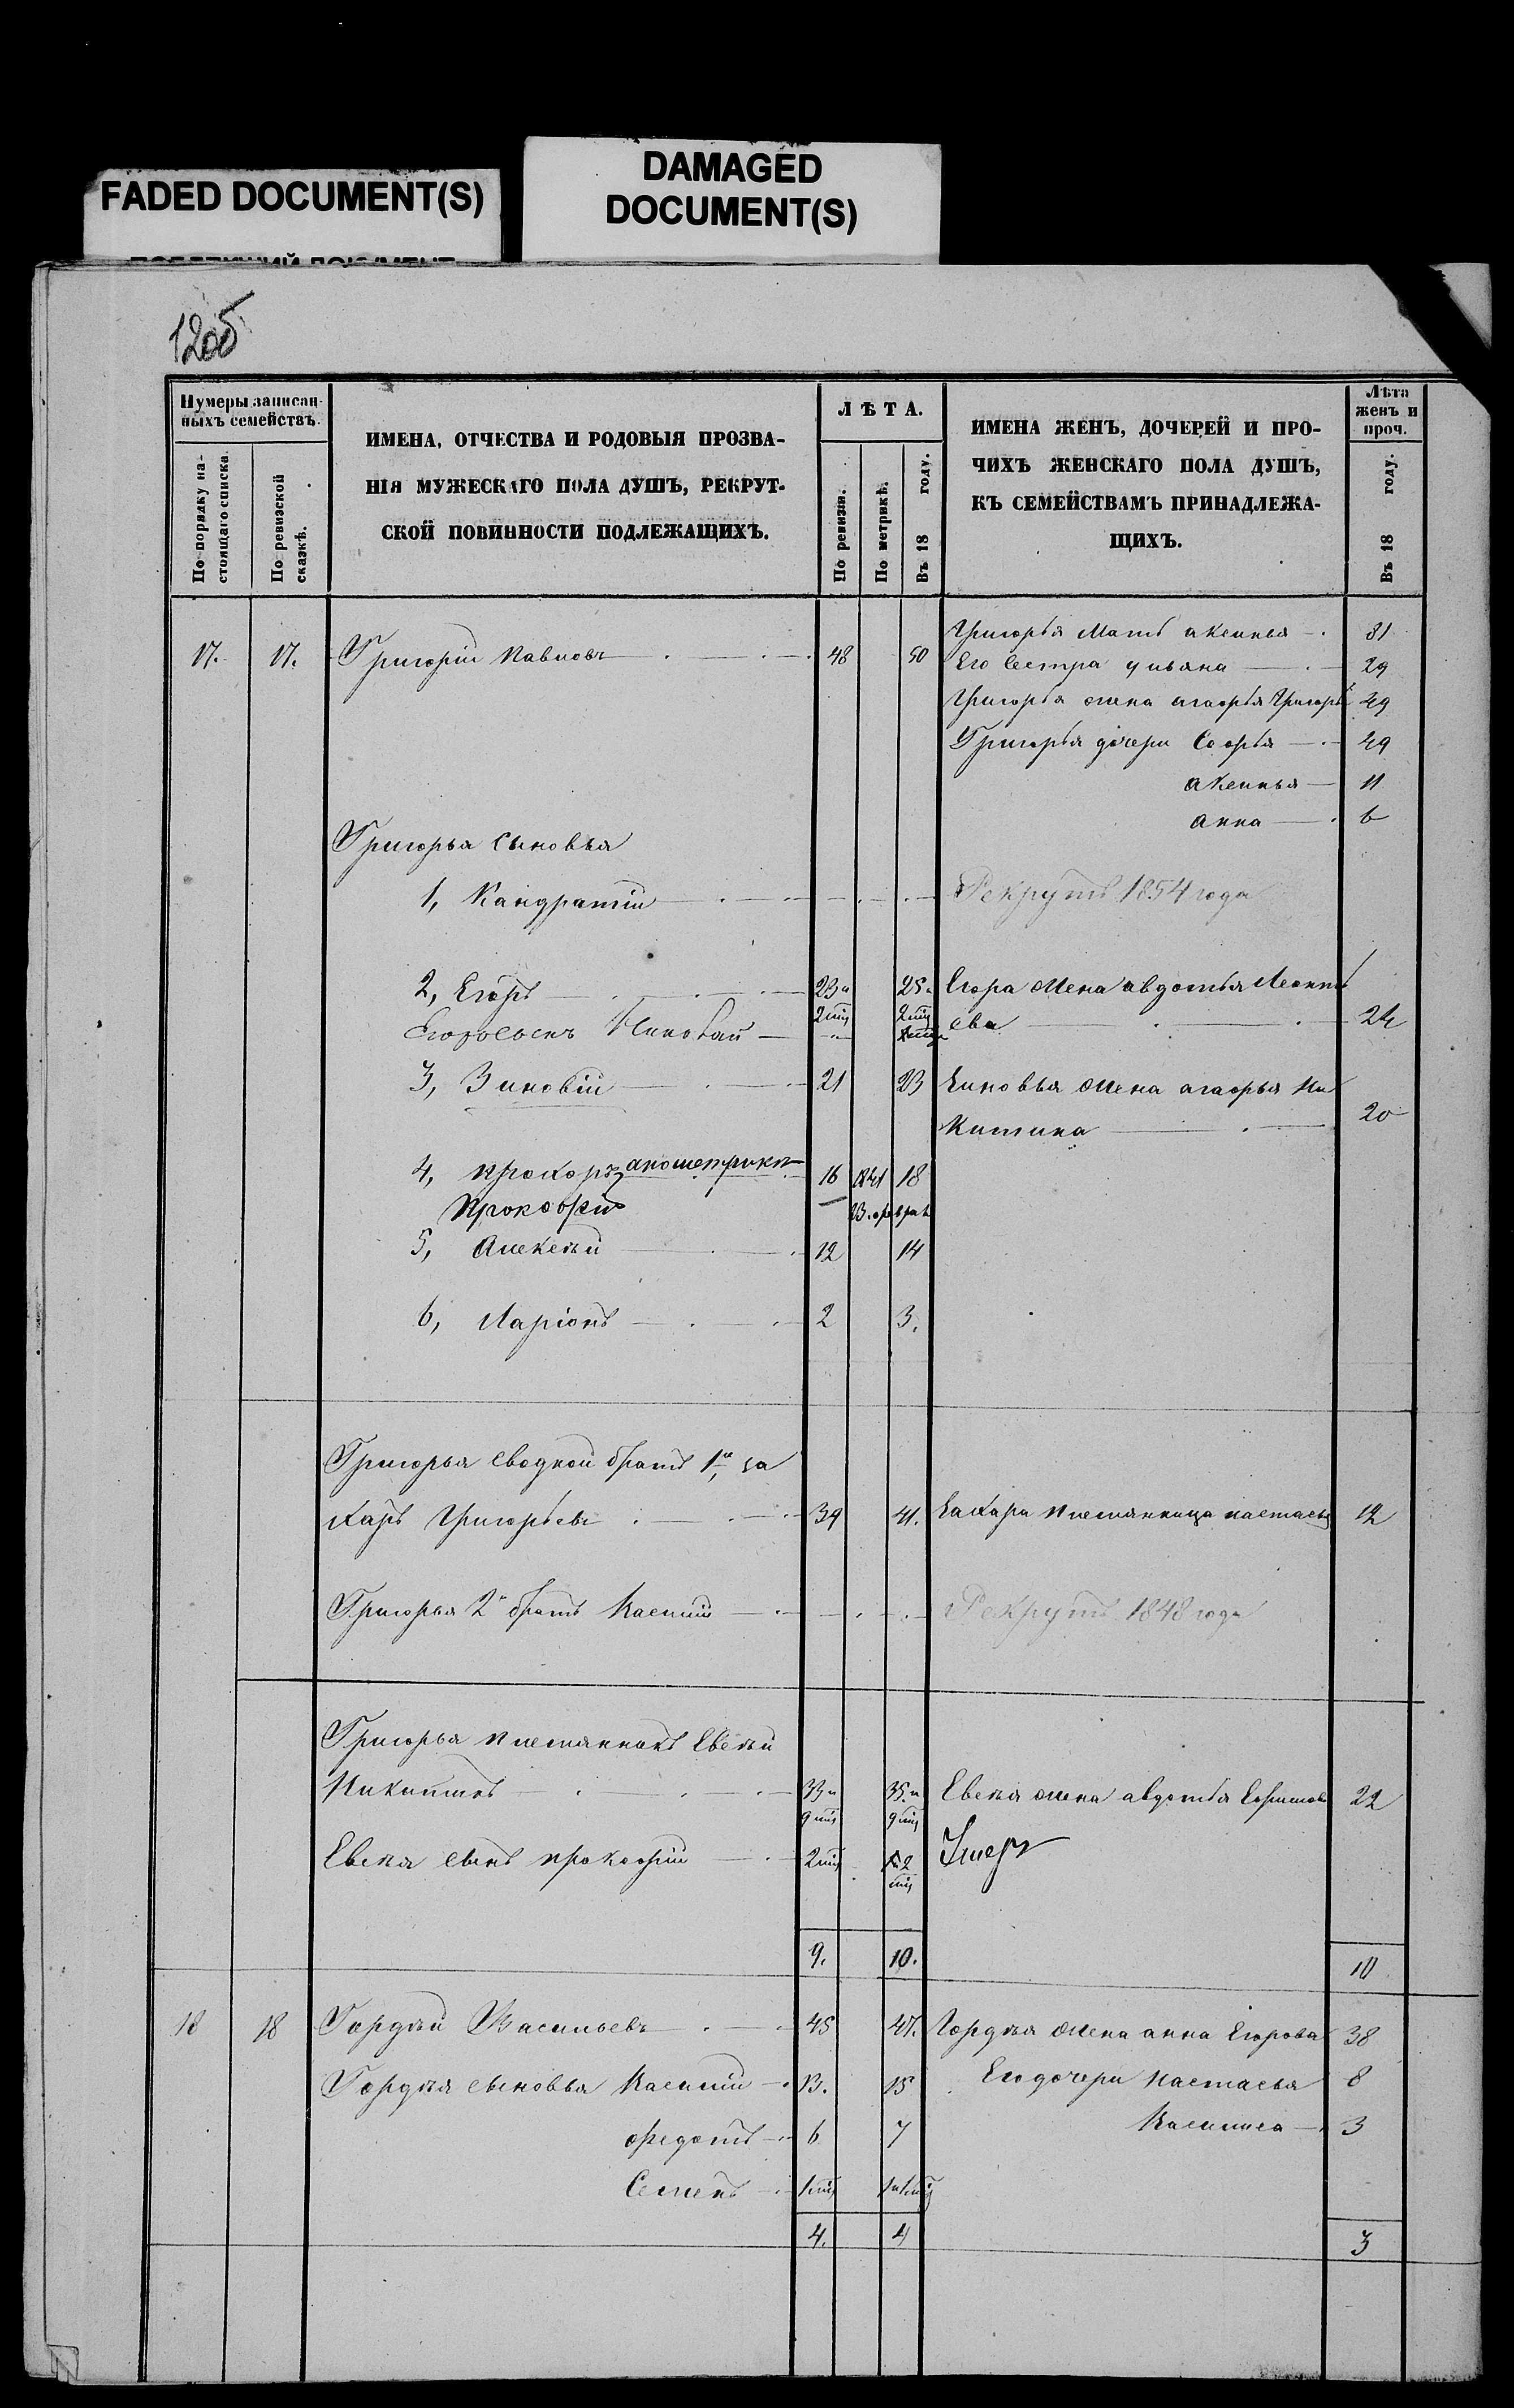 FADED DOCUMENT(S)
DAMAGED
DOCUMENT(S)
120б
Нумеры записан-
ныхъ семействъ.
По порядку на-
стоящаго списка.
По ревизской
сказкѣ.
ИМЕНА, ОТЧЕСТВА И РОДОВЫЯ ПРОЗВА-
НІЯ МУЖЕСКАГО ПОЛА ДУШЪ, РЕКРУТ-
СКОЙ ПОВИННОСТИ ПОДЛЕЖАЩИХЪ.
ЛѢТА.
По ревизіи.
По метрикѣ.
Въ 18 году.
ИМЕНА ЖЕНЪ, ДОЧЕРЕЙ И ПРО-
ЧИХЪ ЖЕНСКАГО ПОЛА ДУШЪ,
КЪ СЕМЕЙСТВАМЪ ПРИНАДЛЕЖА-
ЩИХЪ.
Лѣта
женъ и
проч.
Въ 18 году.
Григорья Мать аксинья 81
17. 17. Григорій Павловъ 48 50 Его Сестра ульяна 29
Григорья жена агафья Григорь 49
Григорья дочери Софья
аксинья 11
анна 6
Григорья Сыновья
1, Кандратій Рекрутъ 1854 года
2, Егоръ 23 25 Егора жена авдотья Леонть
Егоровъ сынъ 2 мц ева 24
3, Зиновій 21 23 Зиновья жена агафья Ни
китина 20
4, Прохоръ а по метрикѣ 16 1841 18
Прокофій 23. февраля
5, Алексѣй 12 14
6, Ларіонъ 2 3.
Григорья Сводной братъ 1й За
харъ Григорьевъ 39 41. Захара племянница настасья 12
Григорья 2й братъ Василій Рекрутъ 1848 года
Григорья племянникъ Евсѣй
Никитинъ 33 35 Евсѣя жена авдотья Ефимова 22
9 мц 9 мц
Евсѣя сынъ прокофій 2 мц 2 Умеръ
мц
9. 10. 10
18 18 Гордѣй Васильевъ 45 47. Гордѣя жена анна Егорова 38
Гордѣя сыновья Василій 13. 15 Его дочери настасья 8
федотъ 6 7 Василиса 3
Семенъ 1 мц
4. 4 3